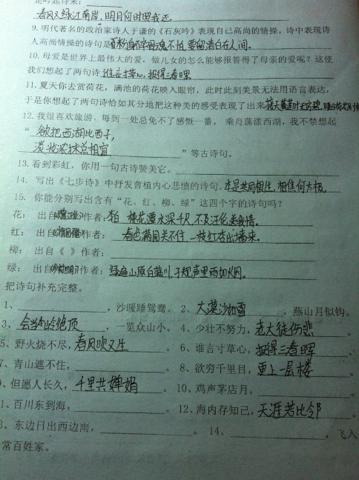 春风又绿江南岸,明月何时照我还
9. 明代著名的政治家诗人于谦的《石灰吟》表现自己高尚的情操。诗中表现诗
人高尚情操的诗句是 粉身碎骨浑不怕,要留清白在人间。
10. 母爱是世界上最伟大的爱,做儿女的怎么能够报答得了母亲的爱呢?这使
我们想起了两句诗 谁言寸草心,报得三春晖
11. 夏天你去赏荷花,满池的荷花映入眼帘,此时此刻美景无法用语言表达,
于是你想起了两句诗恰如其分地把这种美的感受表现了出来 接天莲叶无穷碧,
12. 我很喜欢旅游,每到一处总免不了感慨一番,乘舟荡漾西湖,我不禁想起
“欲把西湖比西子,
淡妆浓抹总相宜 ”等古诗句。
13. 看到彩虹,你用一句古诗赞美它。
14. 写出《七步诗》中抒发曾植内心悲愤的诗句。本是同根生,相煎何太极。
15. 你能分别写出含有“花、红、柳、绿”这四个字的诗句吗?
花: 出自 作者: 白 桃花潭水深千尺,不及汪伦送我情。
红: 出自 作者: 春色满园关不住,一枝红杏出墙来。
柳: 出自《 》作者:
绿: 出自 作者: 绿遍山原白满川,子规声里雨如烟。
把诗句补充完整。
1、 ,沙暖睡鸳鸯。 2、大漠沙如雪 ,燕山月似钩。
3、会当凌绝顶 ,一览众山小。 4、少壮不努力,老大徒伤悲 。
5、野火烧不尽,春风吹又生 。 6、谁言寸草心,报得三春晖 。
7、青山遮不住, 。 8、欲穷千里目,更上一层楼 。
9、但愿人长久,千里共婵娟 。 10、鸡声茅店月, 。
1、百川东到海, 。 12、海内存知己,天涯若比邻 。
3、东边日出西边雨, 。 14、 ,飞入
常百姓家。